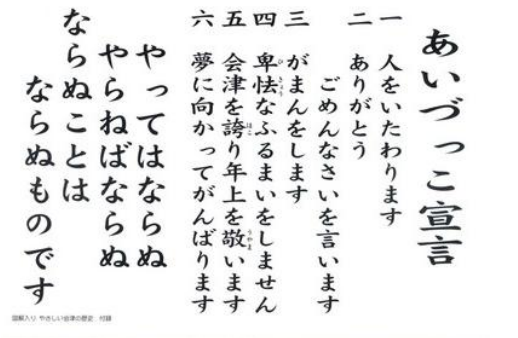 あいづっこ宣言
一 人をいたわります
二 ありがとう
ごめんなさいを言います
三 がまんをします
四 卑怯なふるまいをしません
五 会津を誇り年上を敬います
六 夢に向かってがんばります
やってはならぬ
やらねばならぬ
ならぬことは
ならぬものです
図解入り やさしい会津の歴史 付録